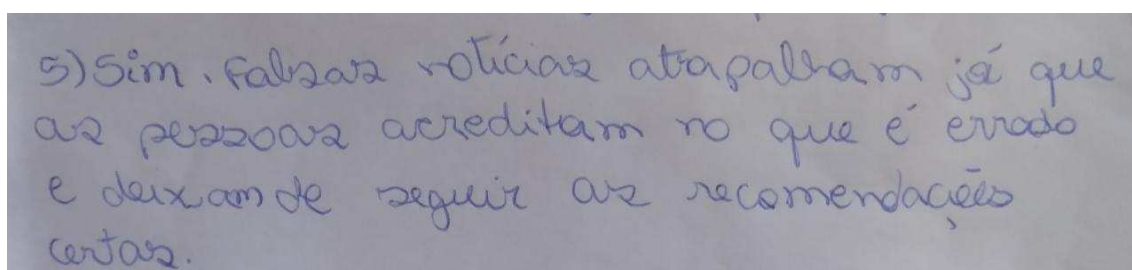 5) Sim. Falsas notícias atrapalham já que
as pessoas acreditam no que é errado
e deixam de seguir as recomendações
certas.